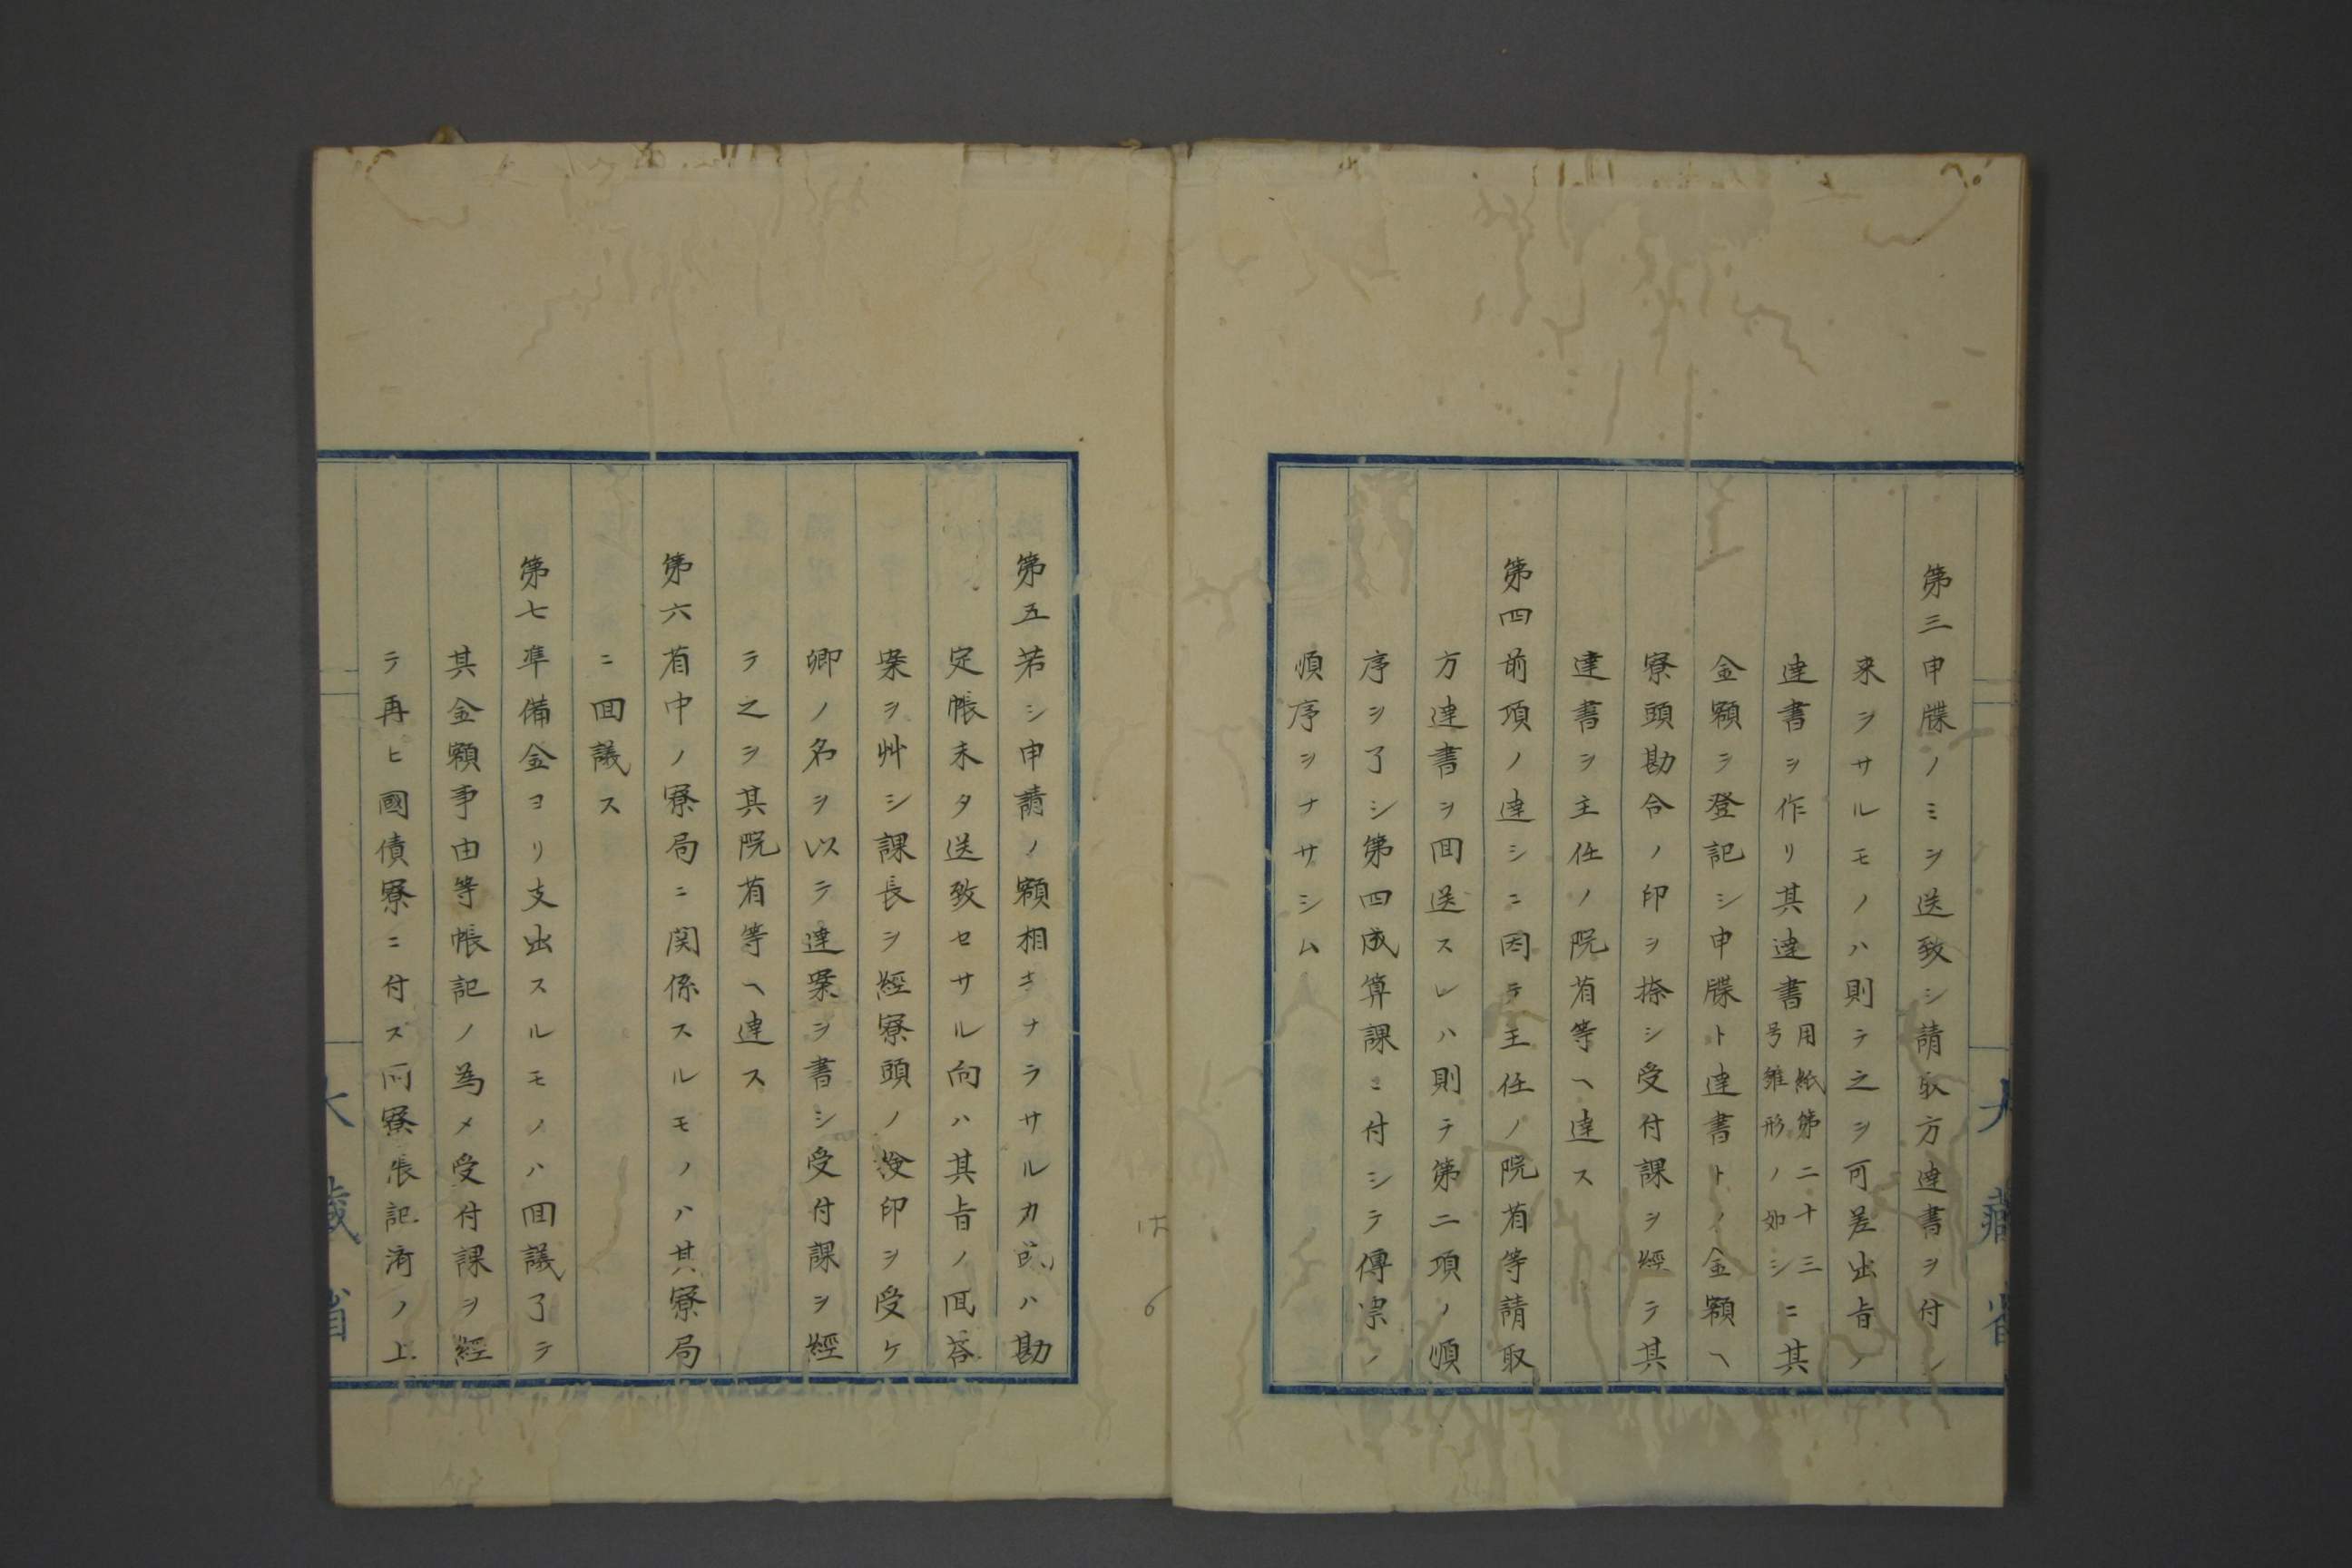 第三申牒ノミヲ送致シ請取方達書ヲ付シ
来ヲサルモノハ則テ之ヲ可差出旨ノ
達書ヲ作リ其達書用紙第二十三号雛形ノ如シニ其
金額ヲ登記シ申牒ト達書トノ金額ヘ
寮頭勘合ノ印ヲ捺シ受付課ヲ経テ其
達書ヲ主任ノ院省等ヘ達ス
第四前項ノ達シニ因テ主任ノ院省等請取
方達書ヲ回送スレハ則テ第二項ノ順
序ヲ了シ第四成算課ニ付シテ傳票ノ
順序ヲナサシム
大藏省
第五若シ申請ノ額相当ナラサルカ或ハ勘
定帳未タ送致セサル向ハ其旨ノ回答
案ヲ艸シ課長ヲ經寮頭ノ檢印ヲ受ケ
卿ノ名ヲ以テ達案ヲ書シ受付課ヲ經
テ之ヲ其院省等ヘ達ス
第六省中ノ寮局ニ関係スルモノハ其寮局
ニ回議ス
第七準備金ヨリ支出スルモノハ回議了テ
其金額事由等帳記ノ為メ受付課ヲ經
テ再ヒ國債寮ニ付ス同寮帳記濟ノ上
大藏省